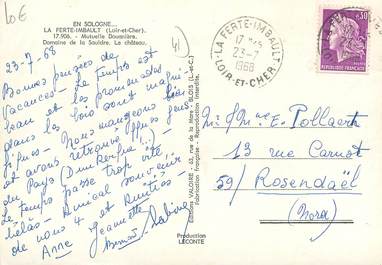 10€
EN SOLOGNE...
LA FERTE-IMBAULT (Loir-et-Cher)
17.906. - Mutuelle Douanière.
Domaine de la Sauldre. Le château.
41
23-7-68
Bonnes pensées de
Vacances. Le temps est
beau et les promenades
dans les bois sont magni-
fiques. Nous mangeons bien
et avons retrouvé gens
du Pays (Dunkerque...)
le temps passe trop vite
hélas. Amical souvenir
de nous 4 et Amitiés.
Jeannette
Anne
Editions VALOIRE - 63, rue de la Mare - BLOIS (L.-et-C.)
Fabrication française - Reproduction interdite.
Production
LECONTE
LA FERTE-IMBAULT
17 H 45
23-7
1968
LOIR-ET-CHER
0,30
REPUBLIQUE FRANÇAISE
Mr Mme E. Pollaert
13 rue Carnot
59/ Rosendaël
(Nord)